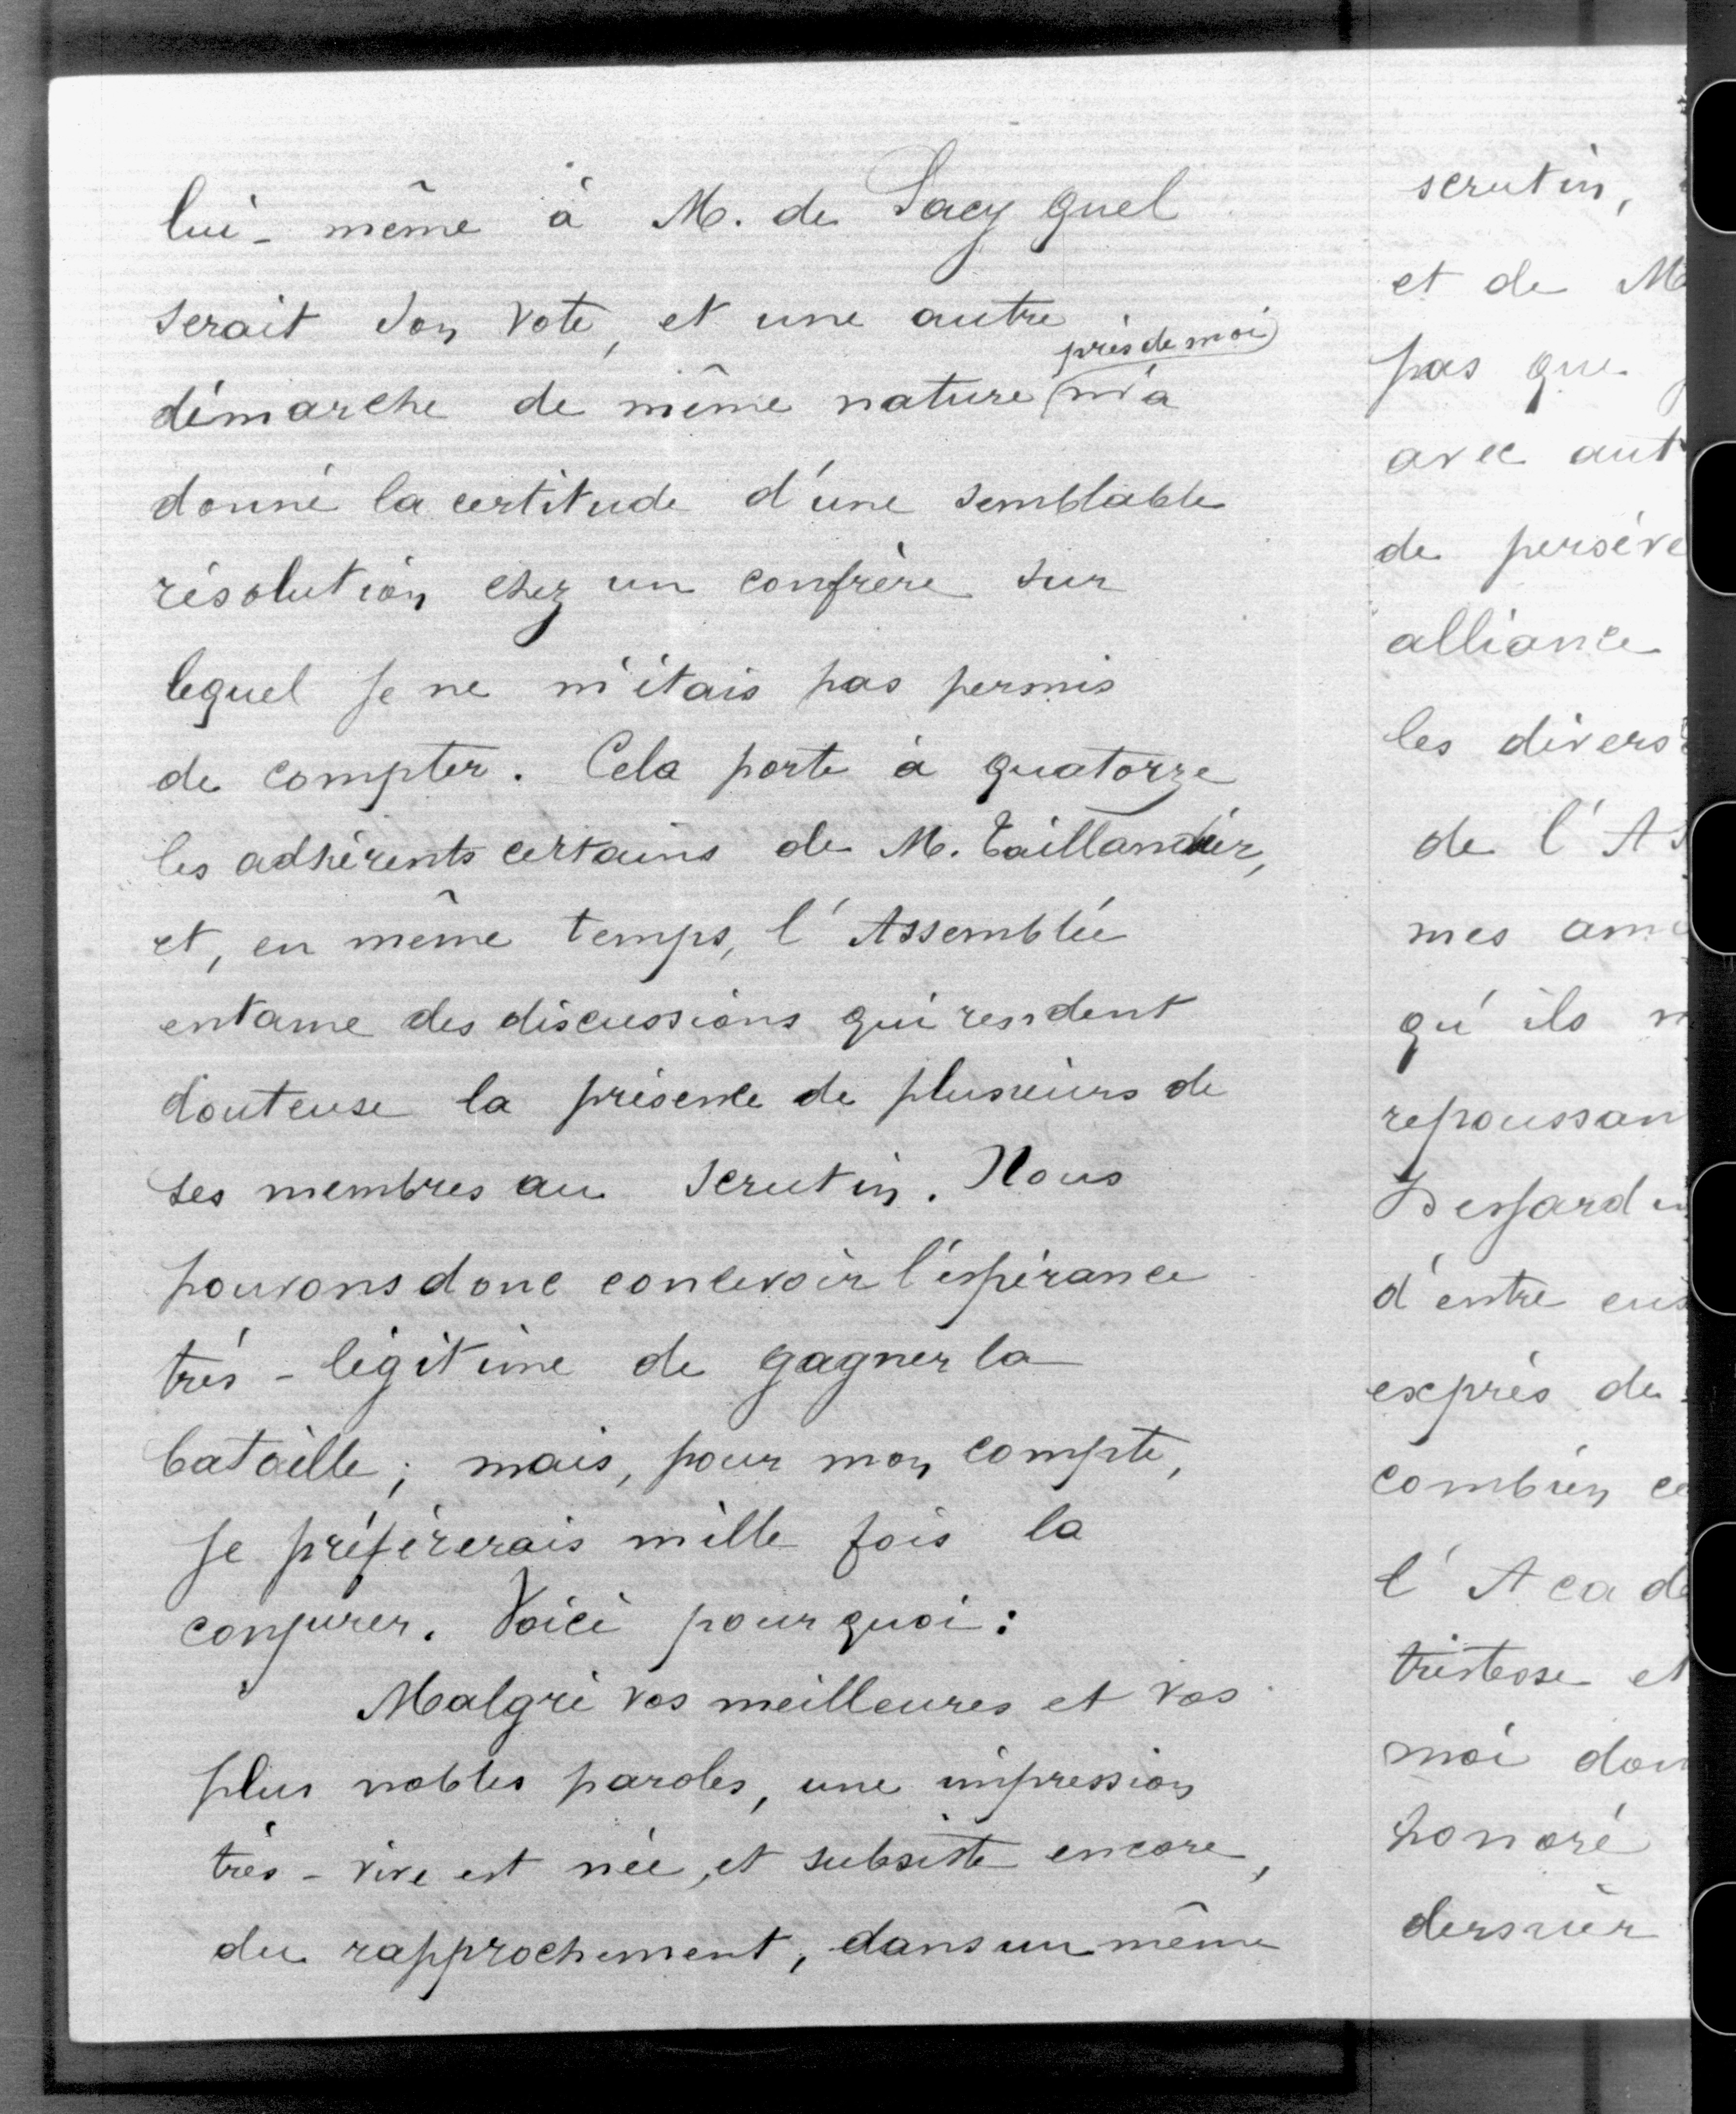 lui-même à M. de Sacy quel
serait son vote, et une autre
près de moi
démarche de même nature m'a
donné la certitude d'une semblable
résolution chez un confrère sur
lequel je ne m'étais pas permis
de compter. Cela porte à quatorze
les adhérents certains de M. Taillandier,
et, en même temps, l'Assemblée
entame des discussions qui rendent
douteuse la présence de plusieurs de
ses membres au scrutin. Nous
pouvons donc concevoir l'espérance
très-légitime de gagner la
bataille; mais, pour mon compte,
je préférerais mille fois la
conjurer. Voici pourquoi:
Malgré vos meilleures et vos
plus nobles paroles, une impression
très-vive est née, et subsiste encore,
du rapprochement, dans un même
scrutin,
et de M
pas que
avec aut
de persévé
alliance
les divers
de l'As
mes am
qu'ils n
repoussan
Desjardin
d'entre eux
exprès de
combien ce
l'Acadé
tristesse et
moi don
honoré
dernier